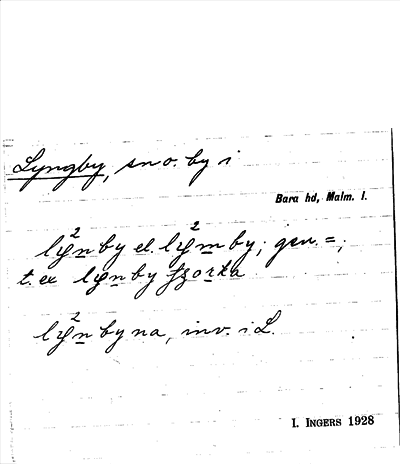 Lyngby, sn o. by i
Bara hd, Malm. l.
ly²nby el. ly²mby; gen. =;
t. ex lynby
ly²nbyna, inv. i L.
I. INGERS 1928